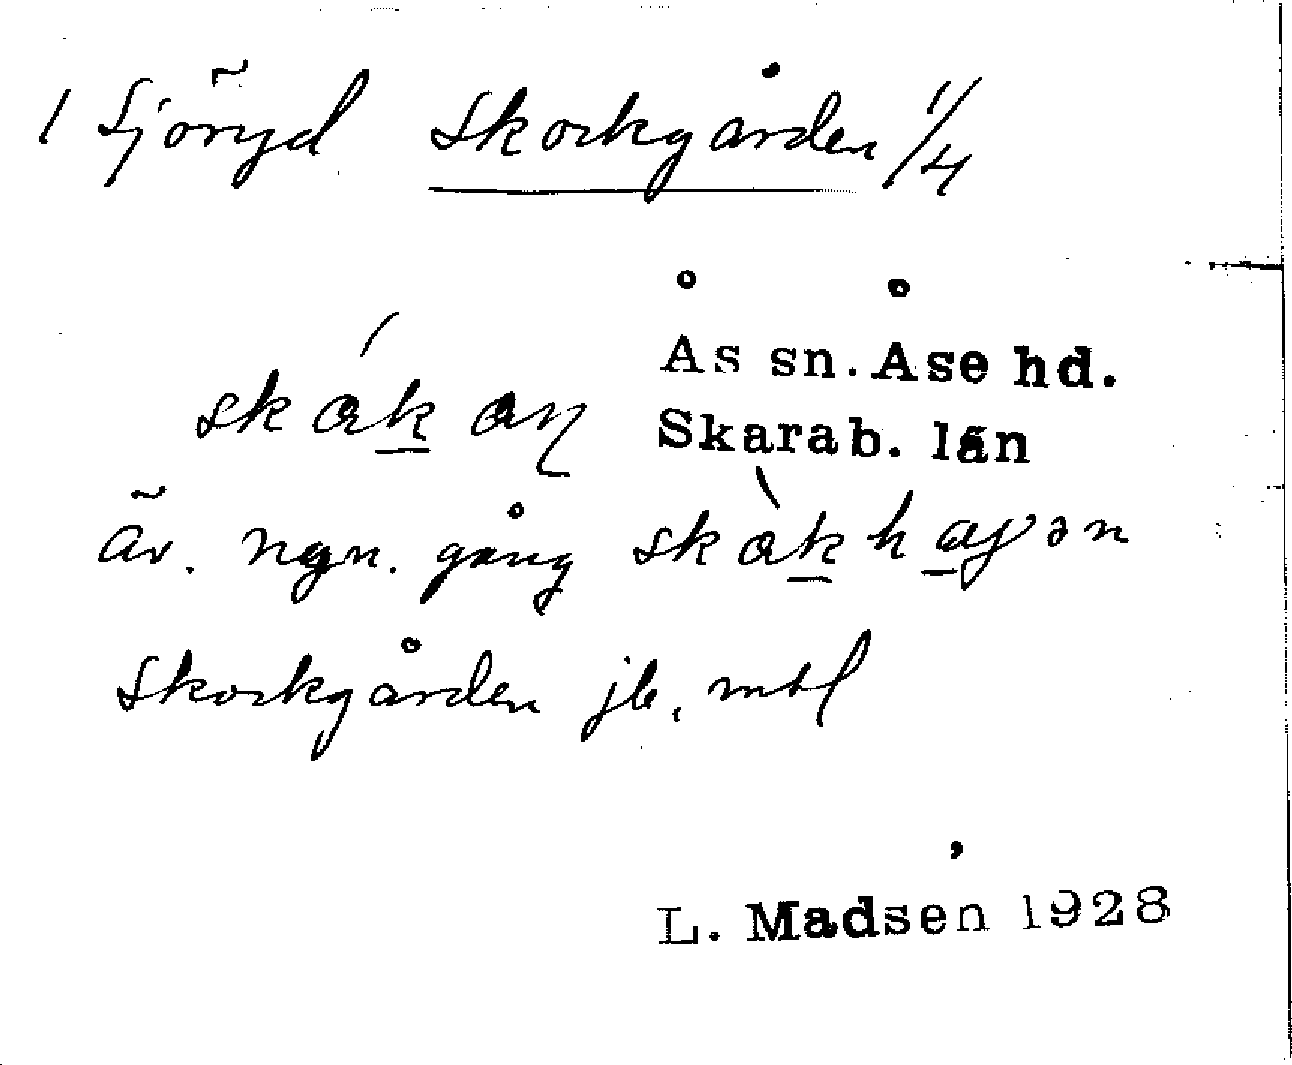 1 Sjöryd Skorkgården 1/4
Ås sn. Åse hd.
Skarab. län
äv. ngn. gång
Skorkgården jb, mtl
L. Madsen 1928